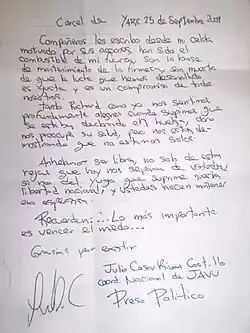 Carcel de Yare 25 de Septiembre 2009
Compañeros les escribo desde mi celda
motivado por sus acciones, han sido el
combustible de mi fuerza, son la base
de mantenimiento de la firmeza, son muestra
de que la lucha que hemos desarrollado
es justa y es un compromiso de todos
nosotros.
Tanto Richard como yo nos sentimos
profundamente alagados cuando supimos que
se estaban declarando en huelga, aun
nos preocupa su salud, pero nos estan de-
mostrando que no estamos solos.
Anhelamos ser libres, no solo de estas
rejas que hoy nos separan de ustedes
si no del Yugo que suprime nuestra
libertad nacional, y ustedes hacen mantener
esa esperanza.
Recuerden: ... Lo más importante
es vencer el miedo...
Gracias por existir
Julio Cesar Rivas Castillo
coord. Nacional de JAVU
Preso Político